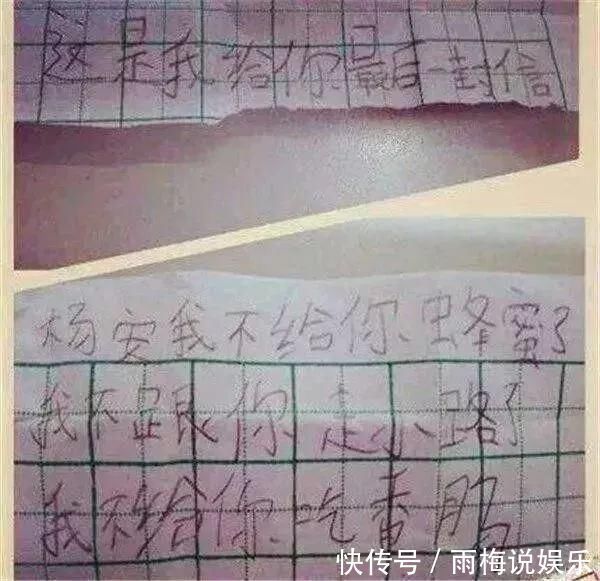 这是我给你最后一封信
杨安我不给你蜂蜜了
我不跟你走小路了
我不给你吃香肠
快传号 / 雨梅说娱乐